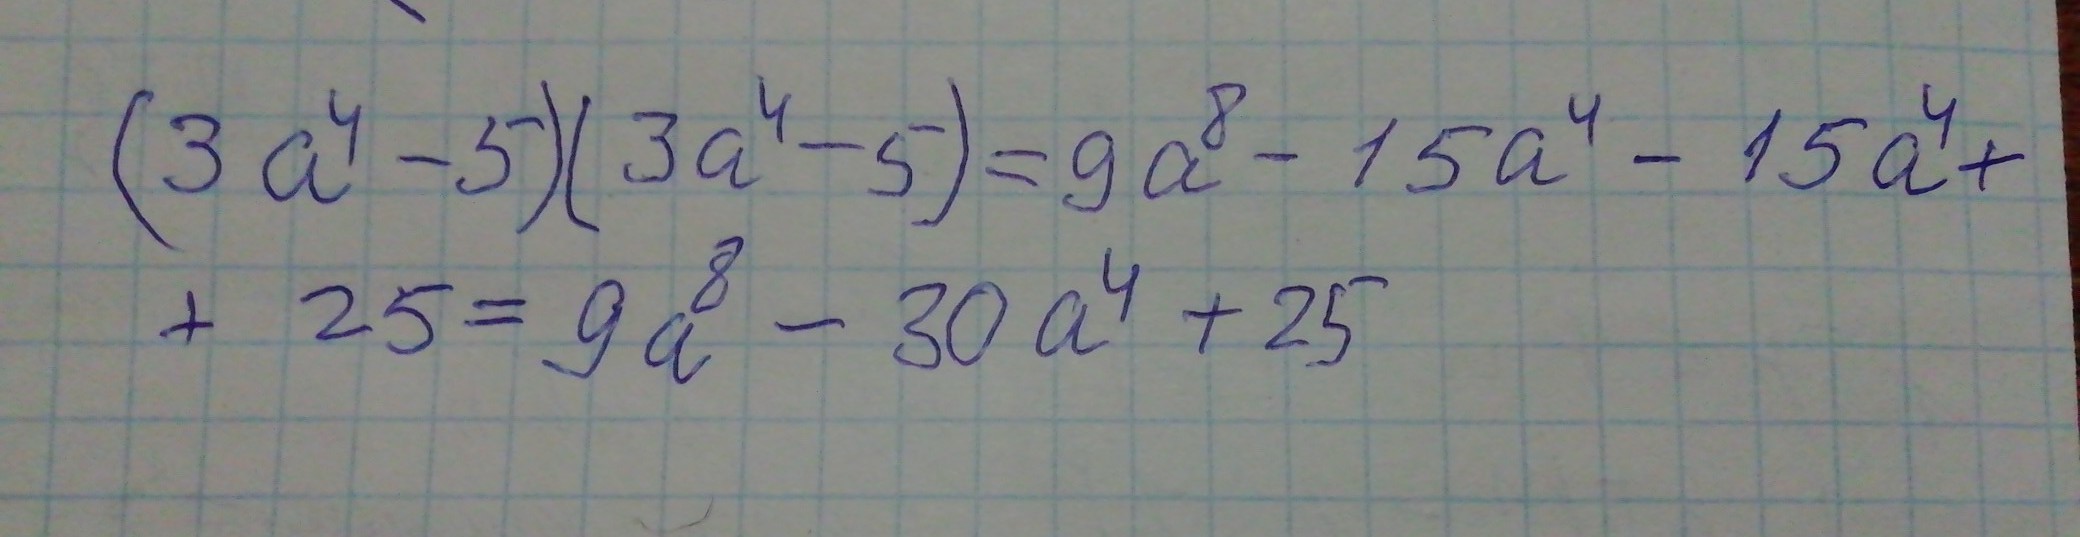 (3a⁴-5)(3a⁴-5)=9a⁸-15a⁴-15a⁴+
+25=9a⁸-30a⁴+25